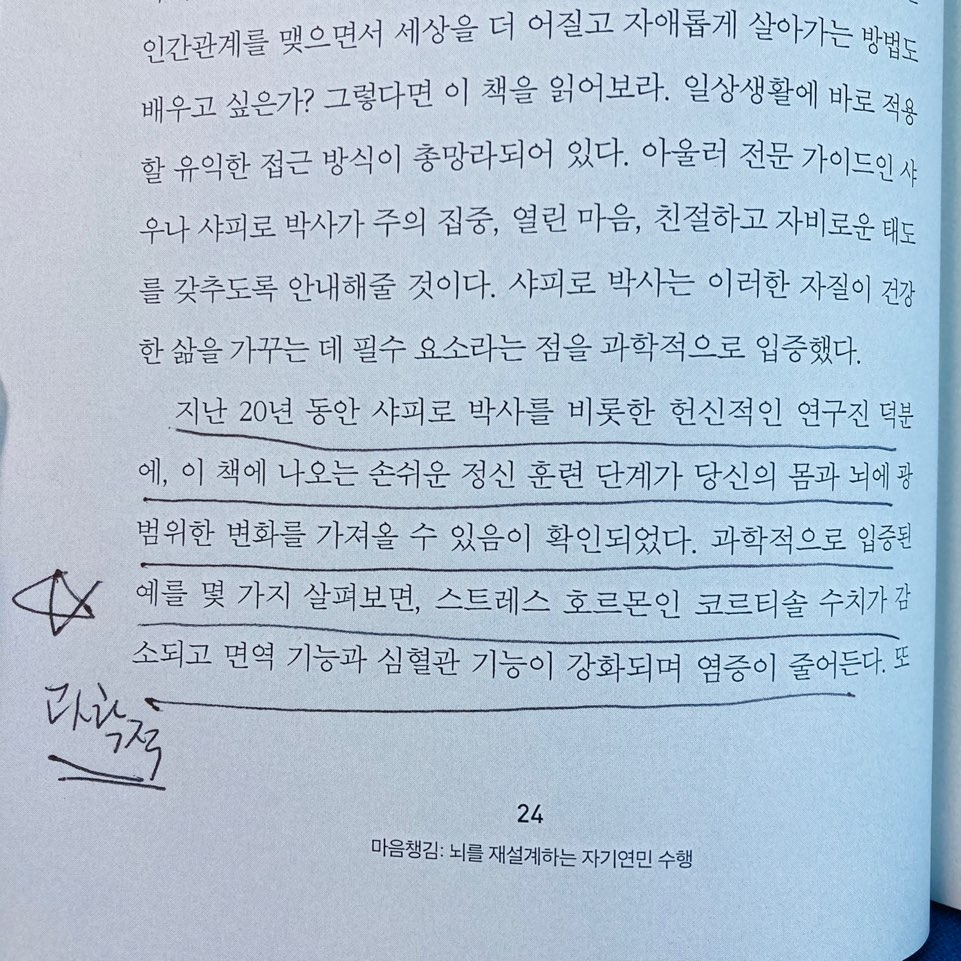 인간관계를 맺으면서 세상을 더 어질고 자애롭게 살아가는 방법도
배우고 싶은가? 그렇다면 이 책을 읽어보라. 일상생활에 바로 적용
할 유익한 접근 방식이 총망라되어 있다. 아울러 전문 가이드인 샤
우나 샤피로 박사가 주의 집중, 열린 마음, 친절하고 자비로운 태도
를 갖추도록 안내해줄 것이다. 샤피로 박사는 이러한 자질이 건강
한 삶을 가꾸는 데 필수 요소라는 점을 과학적으로 입증했다.
지난 20년 동안 샤피로 박사를 비롯한 헌신적인 연구진 덕분
에, 이 책에 나오는 손쉬운 정신 훈련 단계가 당신의 몸과 뇌에 광
범위한 변화를 가져올 수 있음이 확인되었다. 과학적으로 입증된
예를 몇 가지 살펴보면, 스트레스 호르몬인 코르티솔 수치가 감
소되고 면역 기능과 심혈관 기능이 강화되며 염증이 줄어든다. 또
과학적
24
마음챙김: 뇌를 재설계하는 자기연민 수행